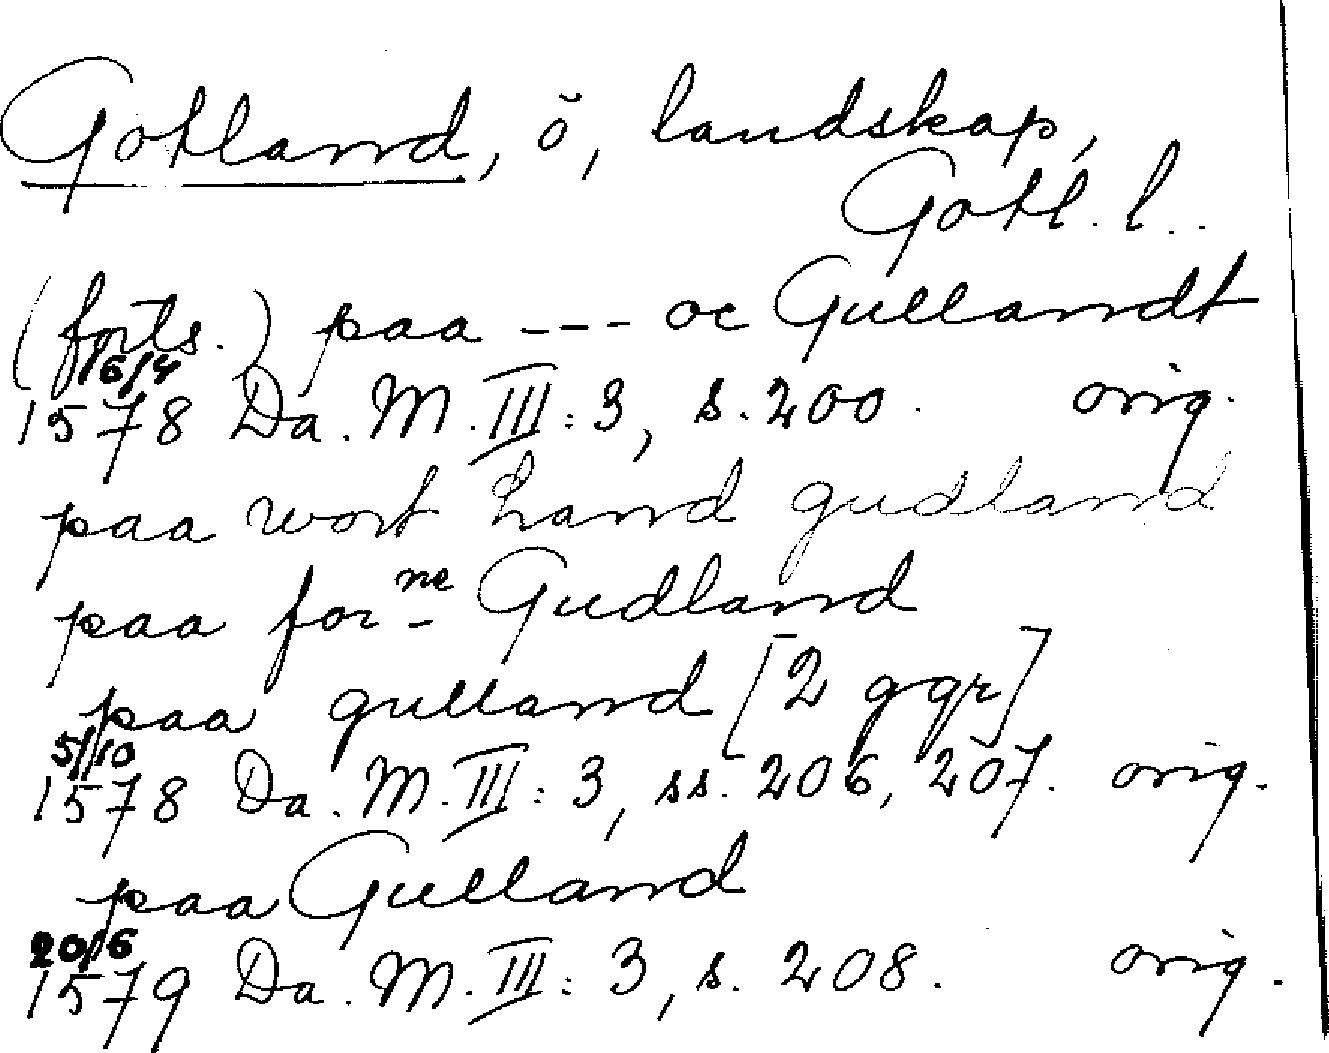 Gotland, ö, landskap,
Gotl. l..
(forts.) paa --- oc Gullandt
16/4
1578 Da. M. III: 3, s. 200. orig.
paa wort land gudland
paa for ne Gudland
paa gulland [2 ggr]
5/10
1578 Da. M. III: 3, ss. 206, 207. orig.
paa Gulland
20/6
1579 Da. M. III: 3, s. 208. orig.